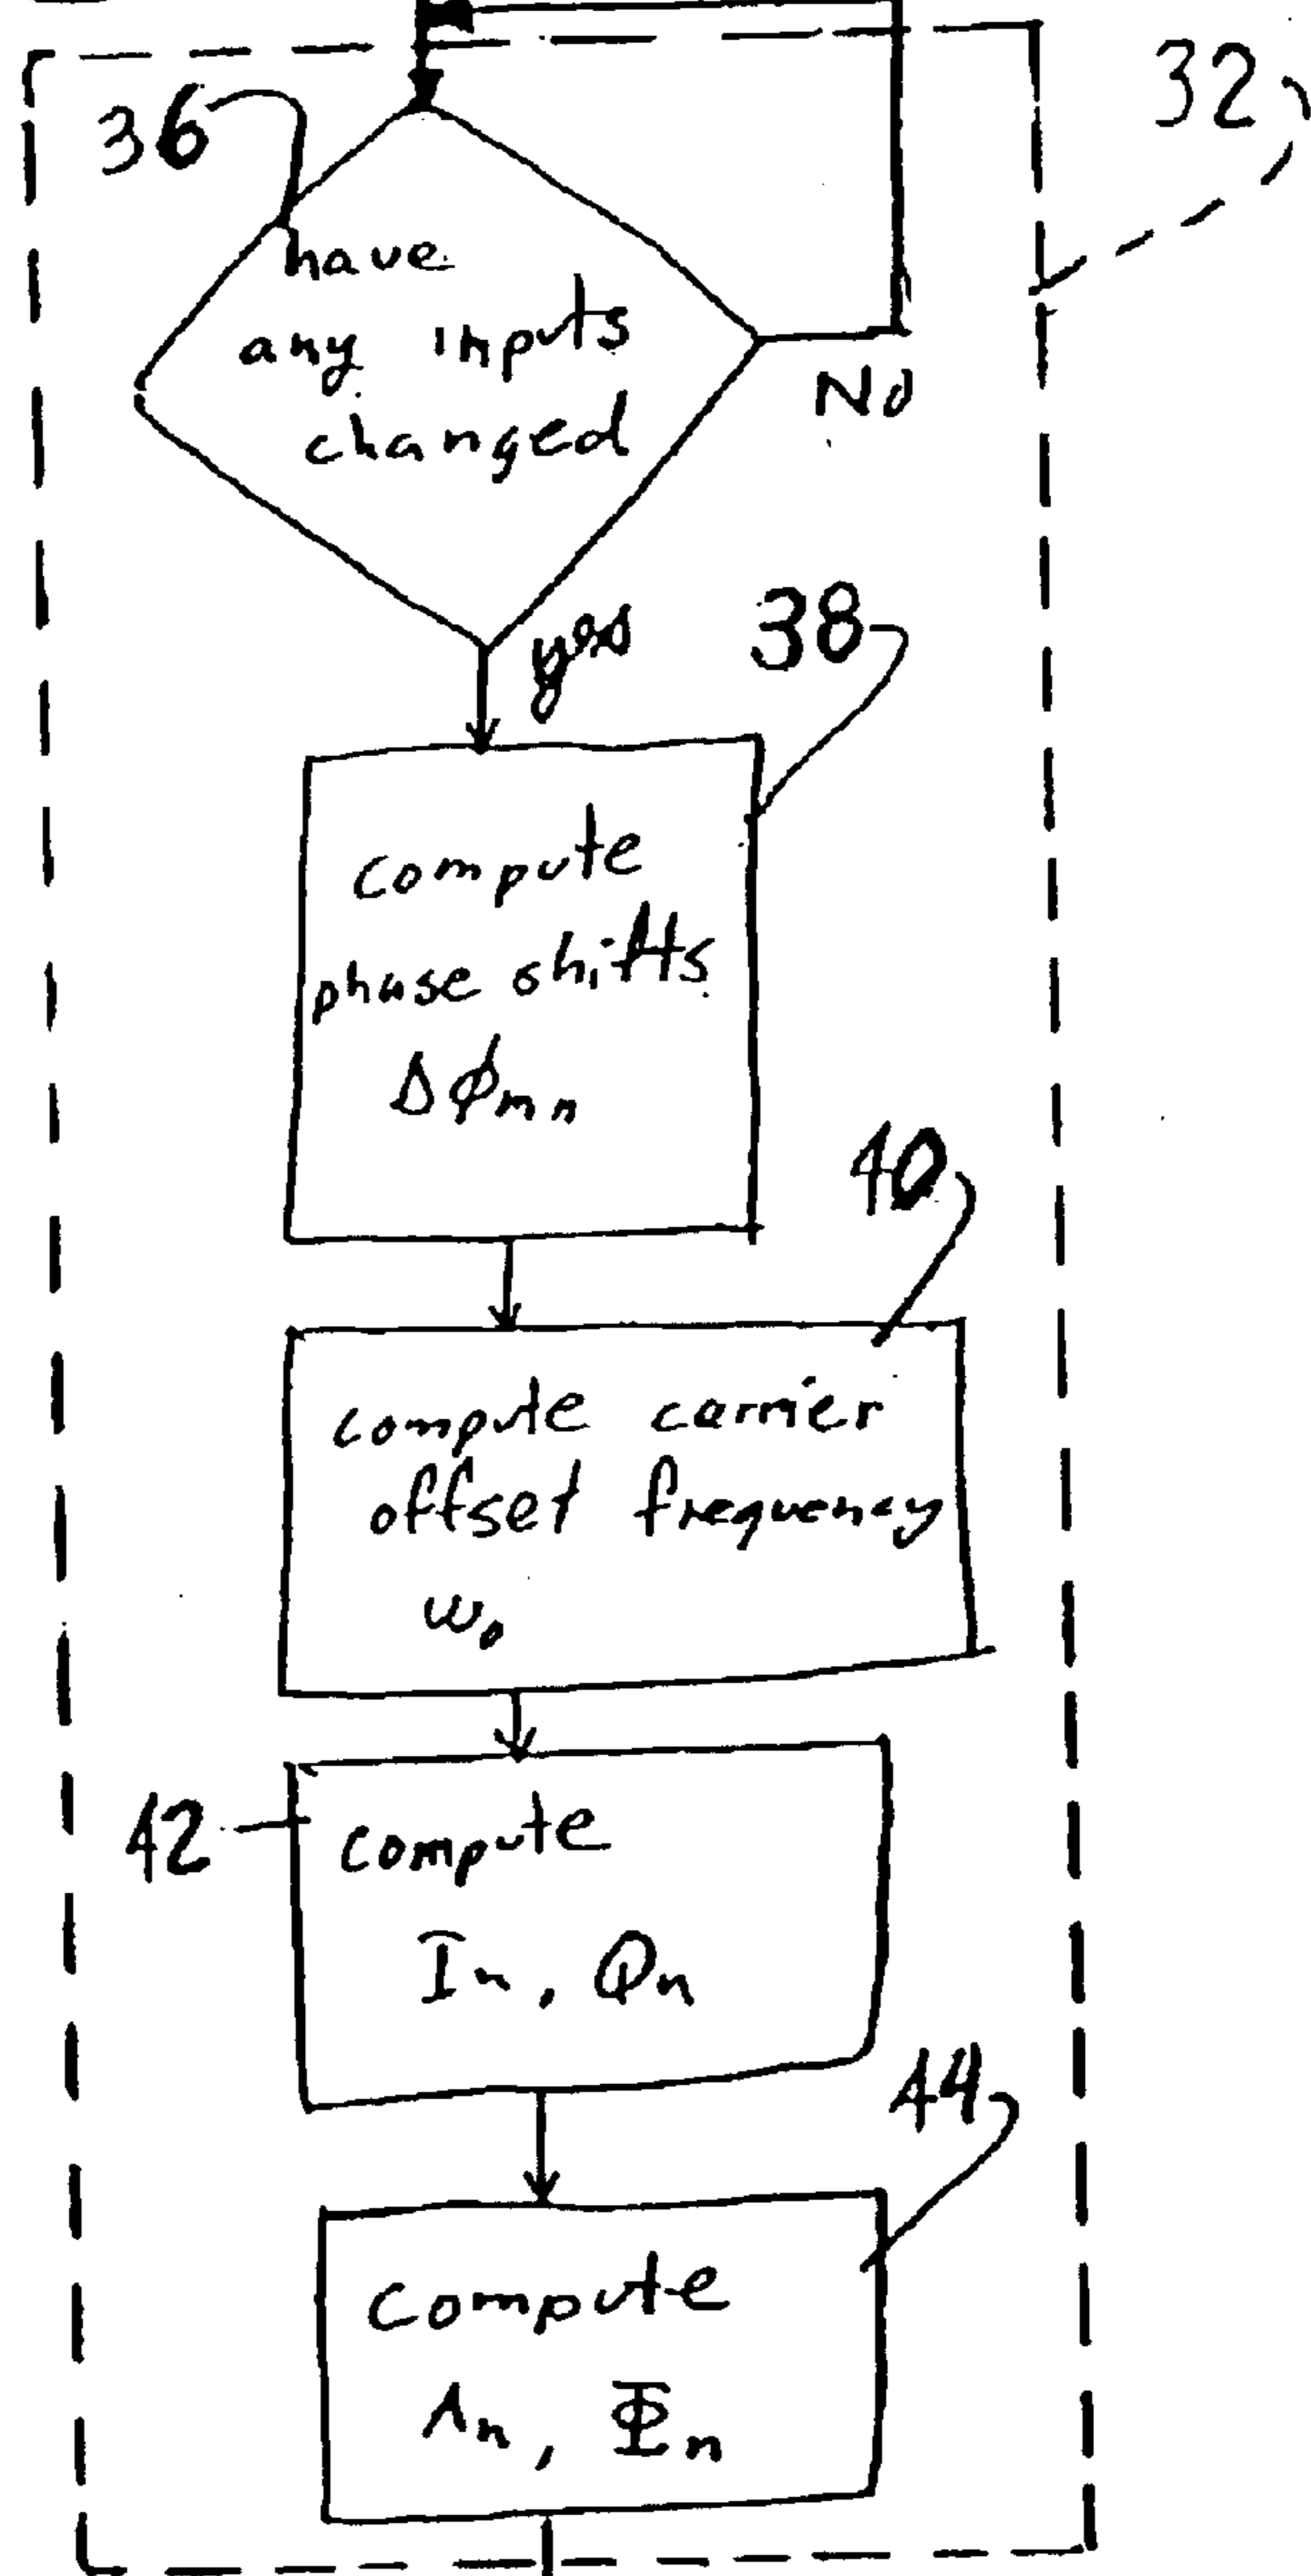 32
36
have
any inputs
changed
No
yes
38
compute
phase shifts
Δϕmn
40
compute carrier
offset frequency
ω₀
42
compute
In, Qn
44
compute
Λn, Φn